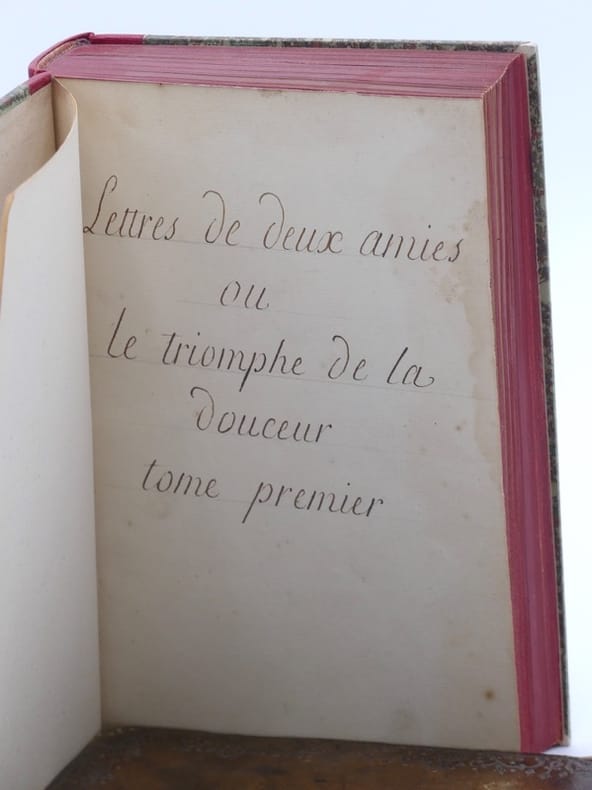 Lettres de deux amies
ou
le triomphe de la
douceur
tome premier